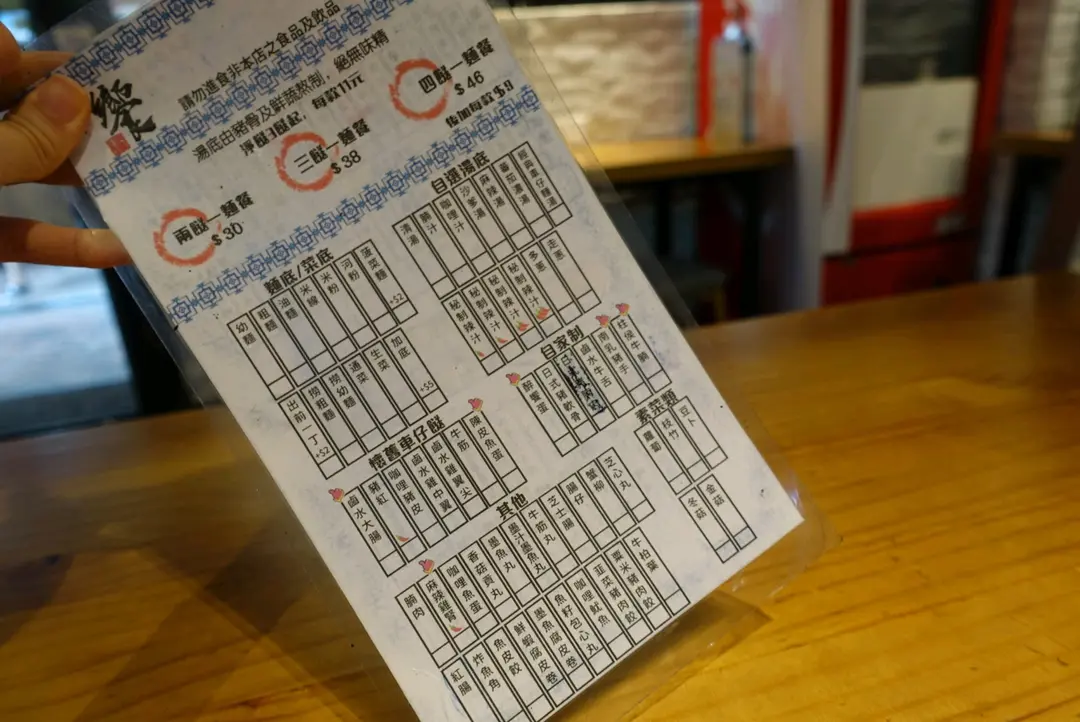 請勿進食非本店之食品及飲品
湯底由豬骨及鮮蔬熬制，絕無味精
淨餸3餸起，每款11元
兩餸一麵餐
$30
三餸一麵餐
$38
四餸一麵餐
$46
後加每款$9
麵底/菜底
幼麵
粗麵
油麵
米線
米粉
河粉
菠菜麵 +$2
出前一丁 +$2
撈粗麵
撈幼麵
通菜
生菜
加底 +$5
自選湯底
清湯
腩汁
咖哩汁
沙爹湯
麻辣湯
番茄濃湯
經典車仔麵湯
秘制辣汁
秘制辣汁
秘制辣汁
秘制辣汁
多蔥
走蔥
懷舊車仔餸
鹵水大腸
豬紅
咖哩豬皮
鹵水雞中翼
鹵水雞翼尖
牛筋
陳皮魚蛋
自家制
醉蜜蛋
日式豬軟骨
鹵水牛舌
南乳豬手
柱侯牛腩
素菜類
蘿蔔
枝竹
豆卜
冬菇
金菇
其他
腩肉
麻辣雞腎
咖哩魚蛋
香菇貢丸
墨魚丸
墨汁墨魚丸
牛筋丸
芝士腸
腸仔
蟹柳
芝心丸
紅腸
炸魚角
魚皮餃
鮮蝦腐皮卷
墨魚腐皮卷
魚籽包心丸
咖哩魷魚
韮菜豬肉餃
粟米豬肉餃
牛柏葉